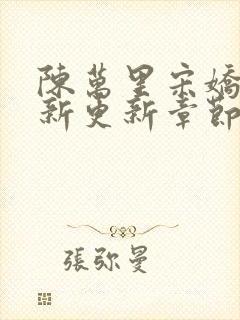 陳萬里宋嬌
新更新章節
張弥曼